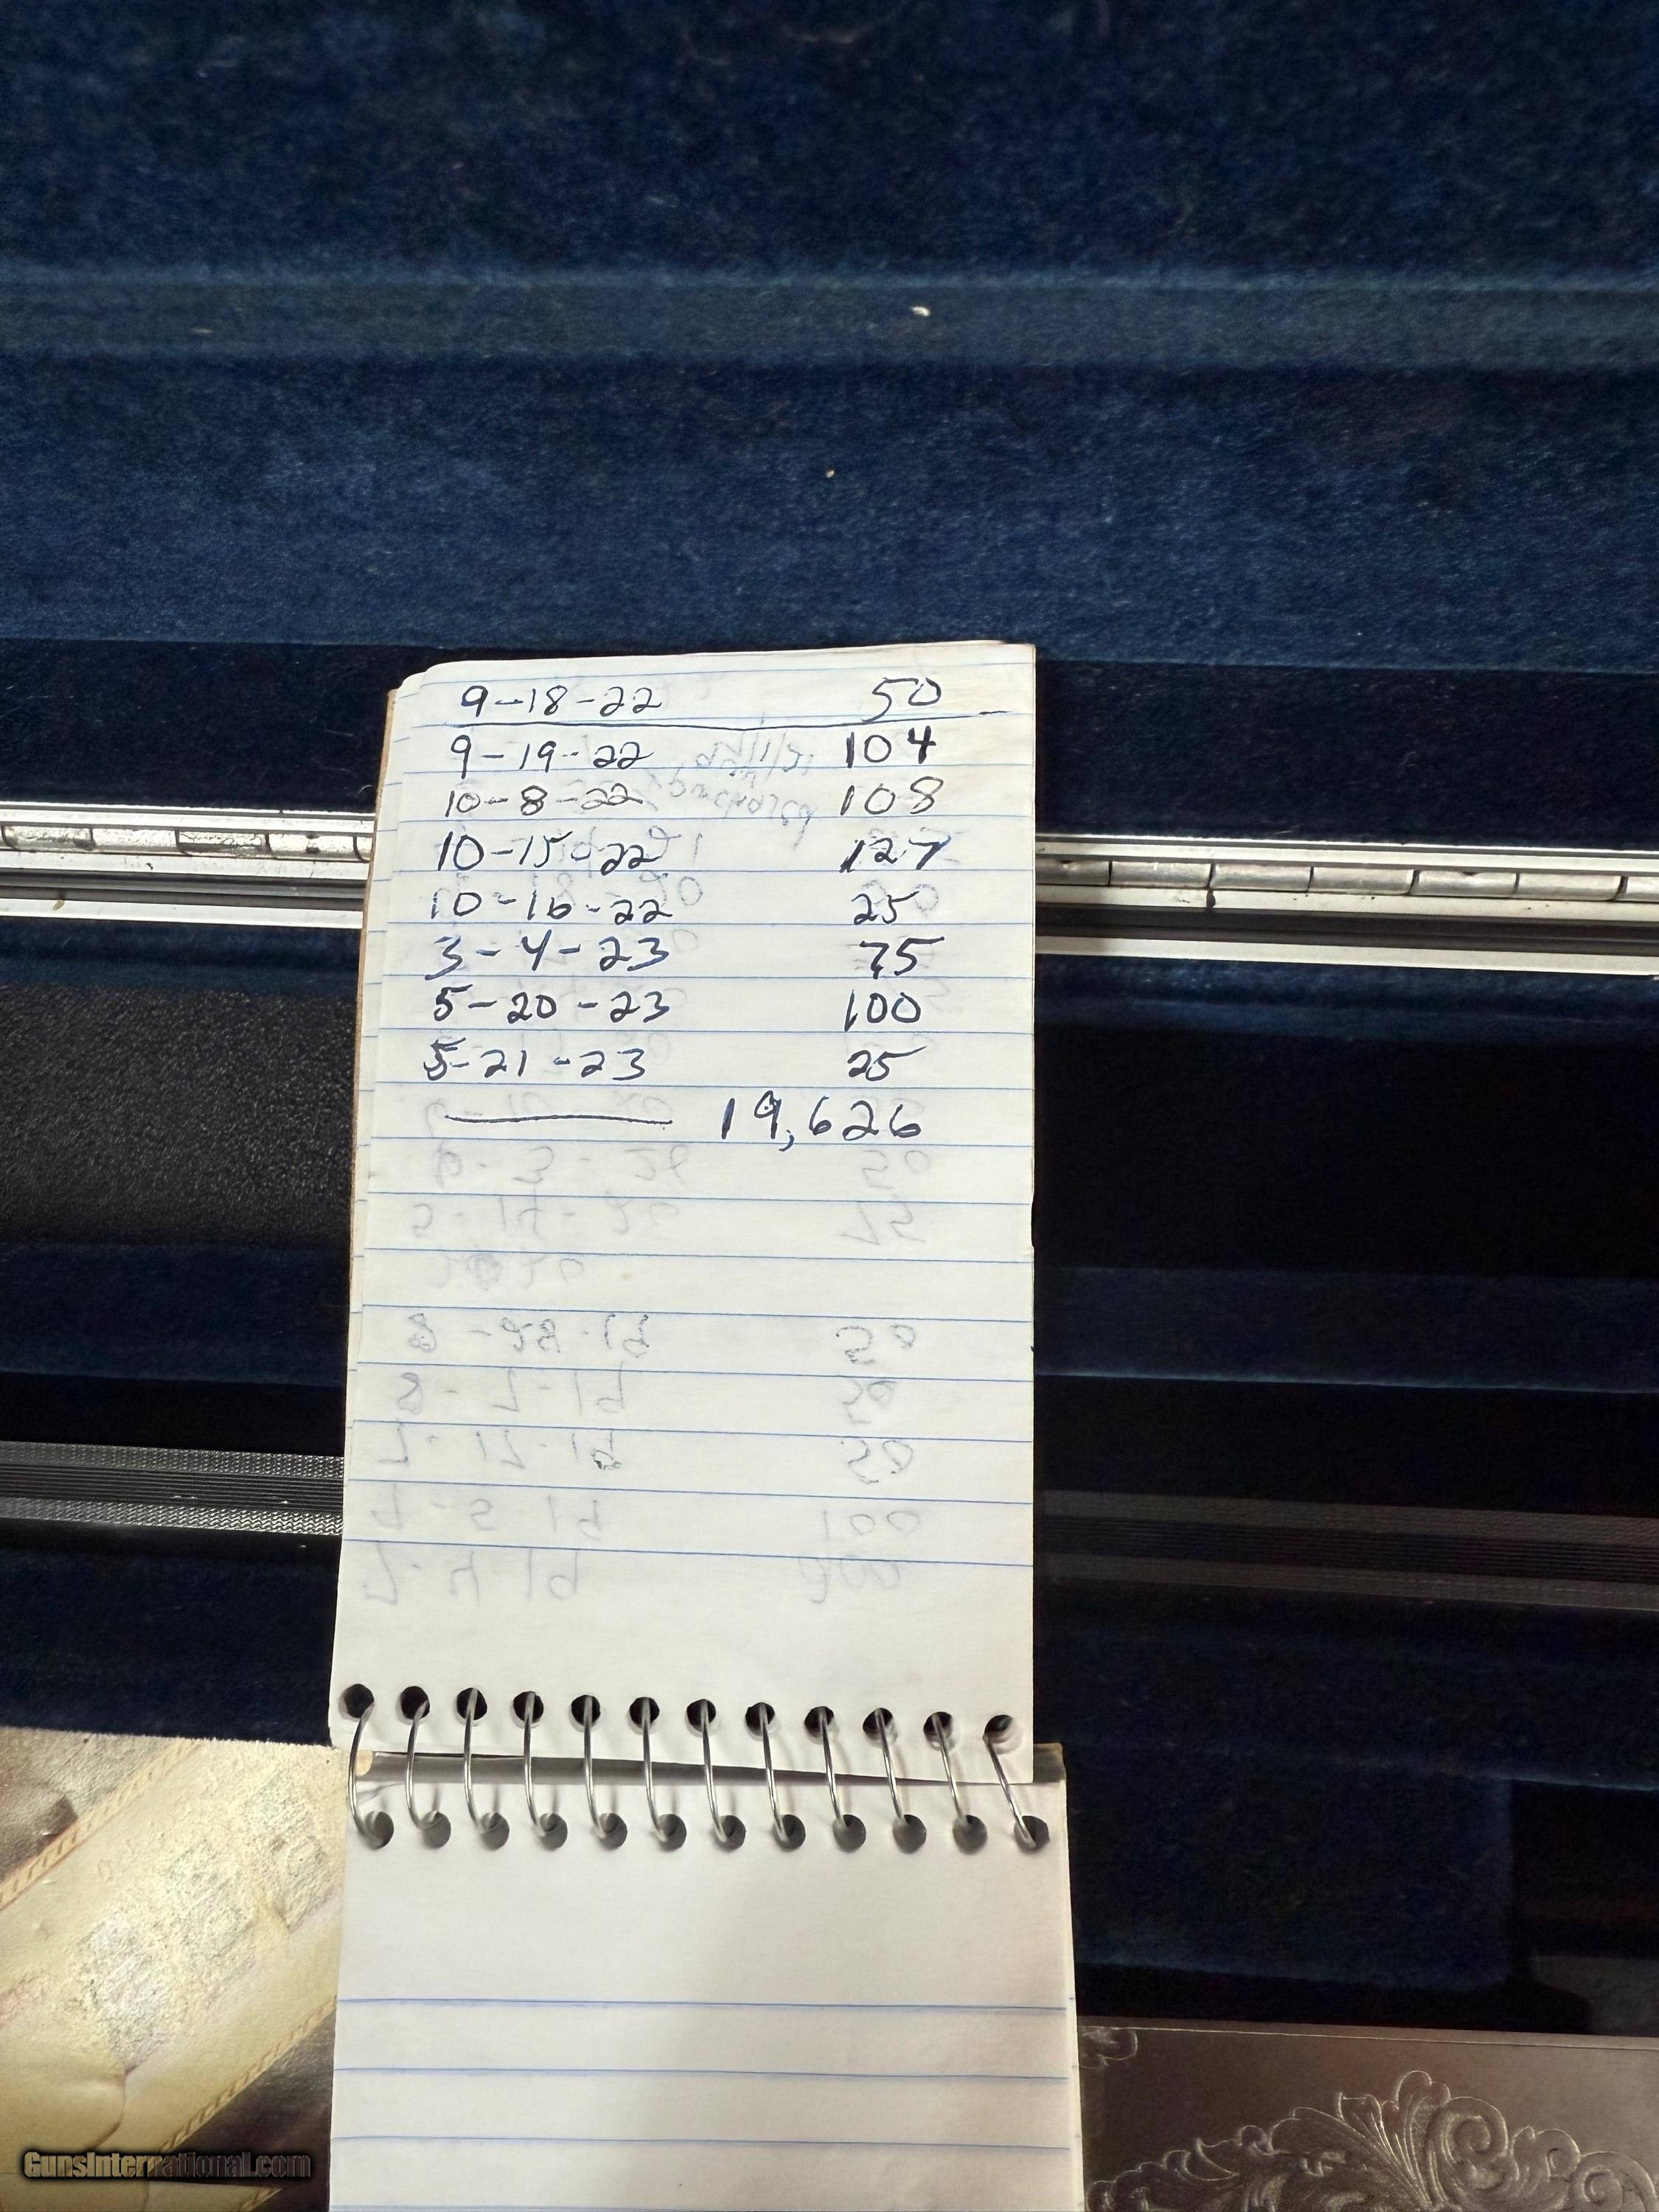 9-18-22 50
9-19-22 104
10-8-22 108
10-15-22 127
10-16-22 25
3-4-23 75
5-20-23 100
5-21-23 25
19,626
GunsInternational.com